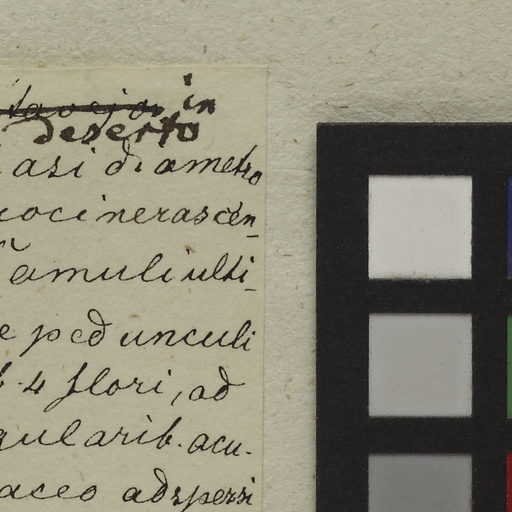 in
deserto
asi diametro
cocinerascen_
ramuli ulti_
e pedunculi
4 flori, ad
gularib. acu.
aceo adspersi